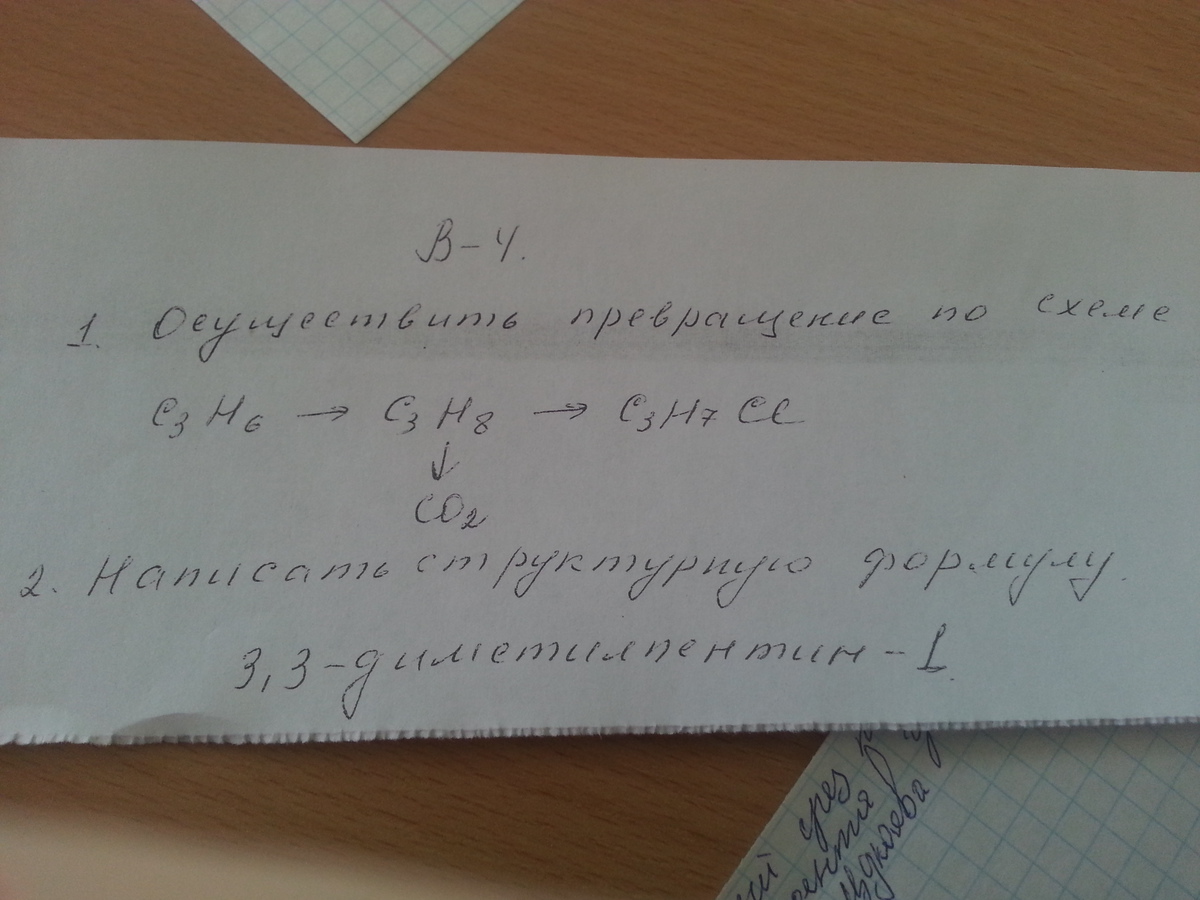 В-4.
1. Осуществить превращение по схеме
C₃H₆ → C₃H₈ → C₃H₇Cl
↓
CO₂
2. Написать структурную формулу.
3,3-диметилпентин-1.
срез